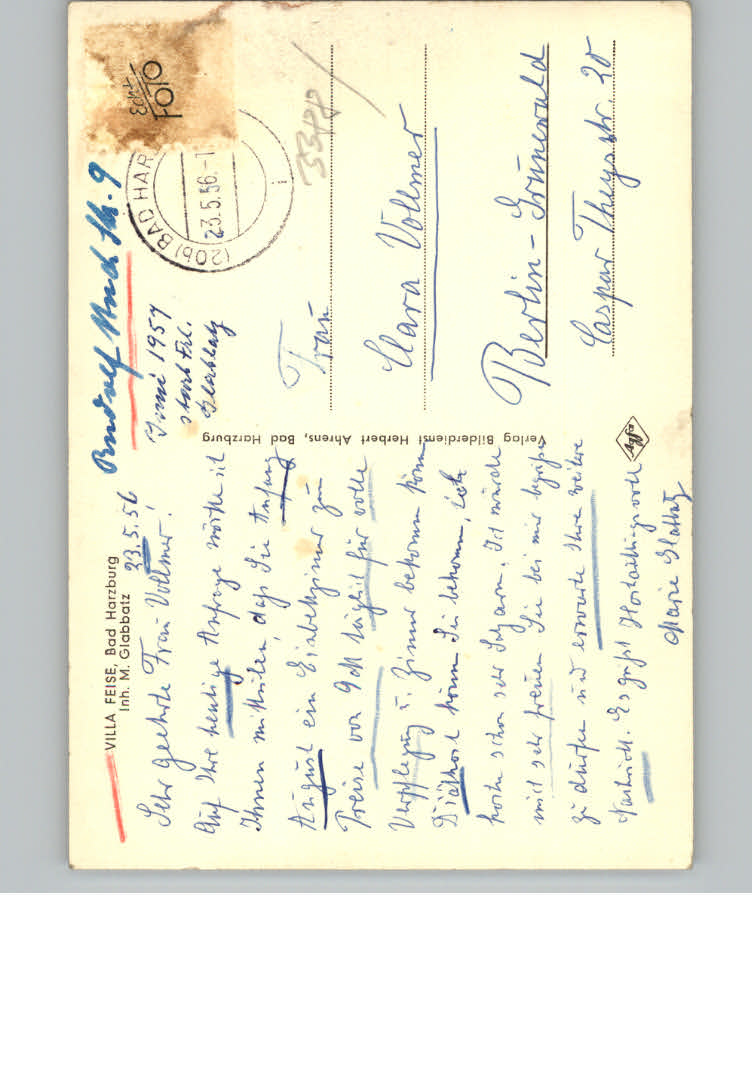 VILLA FEISE, Bad Harzburg
Inh. M. Glabbatz
23.5.56
Sehr geehrte Frau Vollmer!
Auf Ihre heutige Anfrage möchte ich
Ihnen mitteilen, daß Sie Anfang
August ein Einbettzimmer zum
Preise von 9 DM täglich für volle
Verpflegung u. Zimmer bekommen können
Diätkost können Sie bekommen, ich
koche schon sehr Salzarm. Ich würde
mich sehr freuen Sie bei mir begrüßen
zu dürfen und erwarte Ihre weitere
Nachricht. Es grüßt Hochachtungsvoll
Marie Glabbatz
Verlag Bilderdienst Herbert Ahrens, Bad Harzburg
Agfa
Rudolf Str. 9
Juni 1957
starb Frl.
Glabbatz
Echt-
FOTO
(20b) BAD HAR
23.5.56.-1
i
Frau
Clara Vollmer
Berlin-Grunewald
Caspar Theyss str. 20